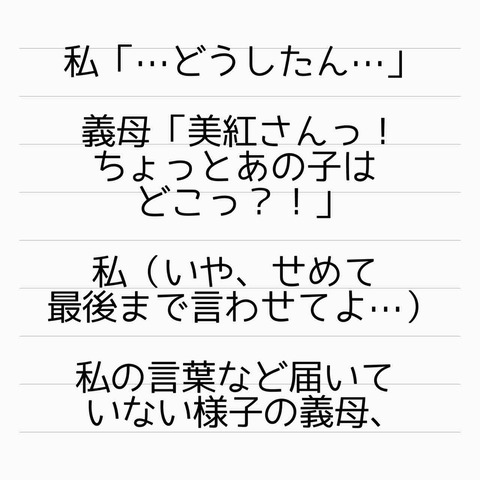 私「…どうしたん…」
義母「美紅さんっ！
ちょっとあの子は
どこっ？！」
私（いや、せめて
最後まで言わせてよ…）
私の言葉など届いて
いない様子の義母、